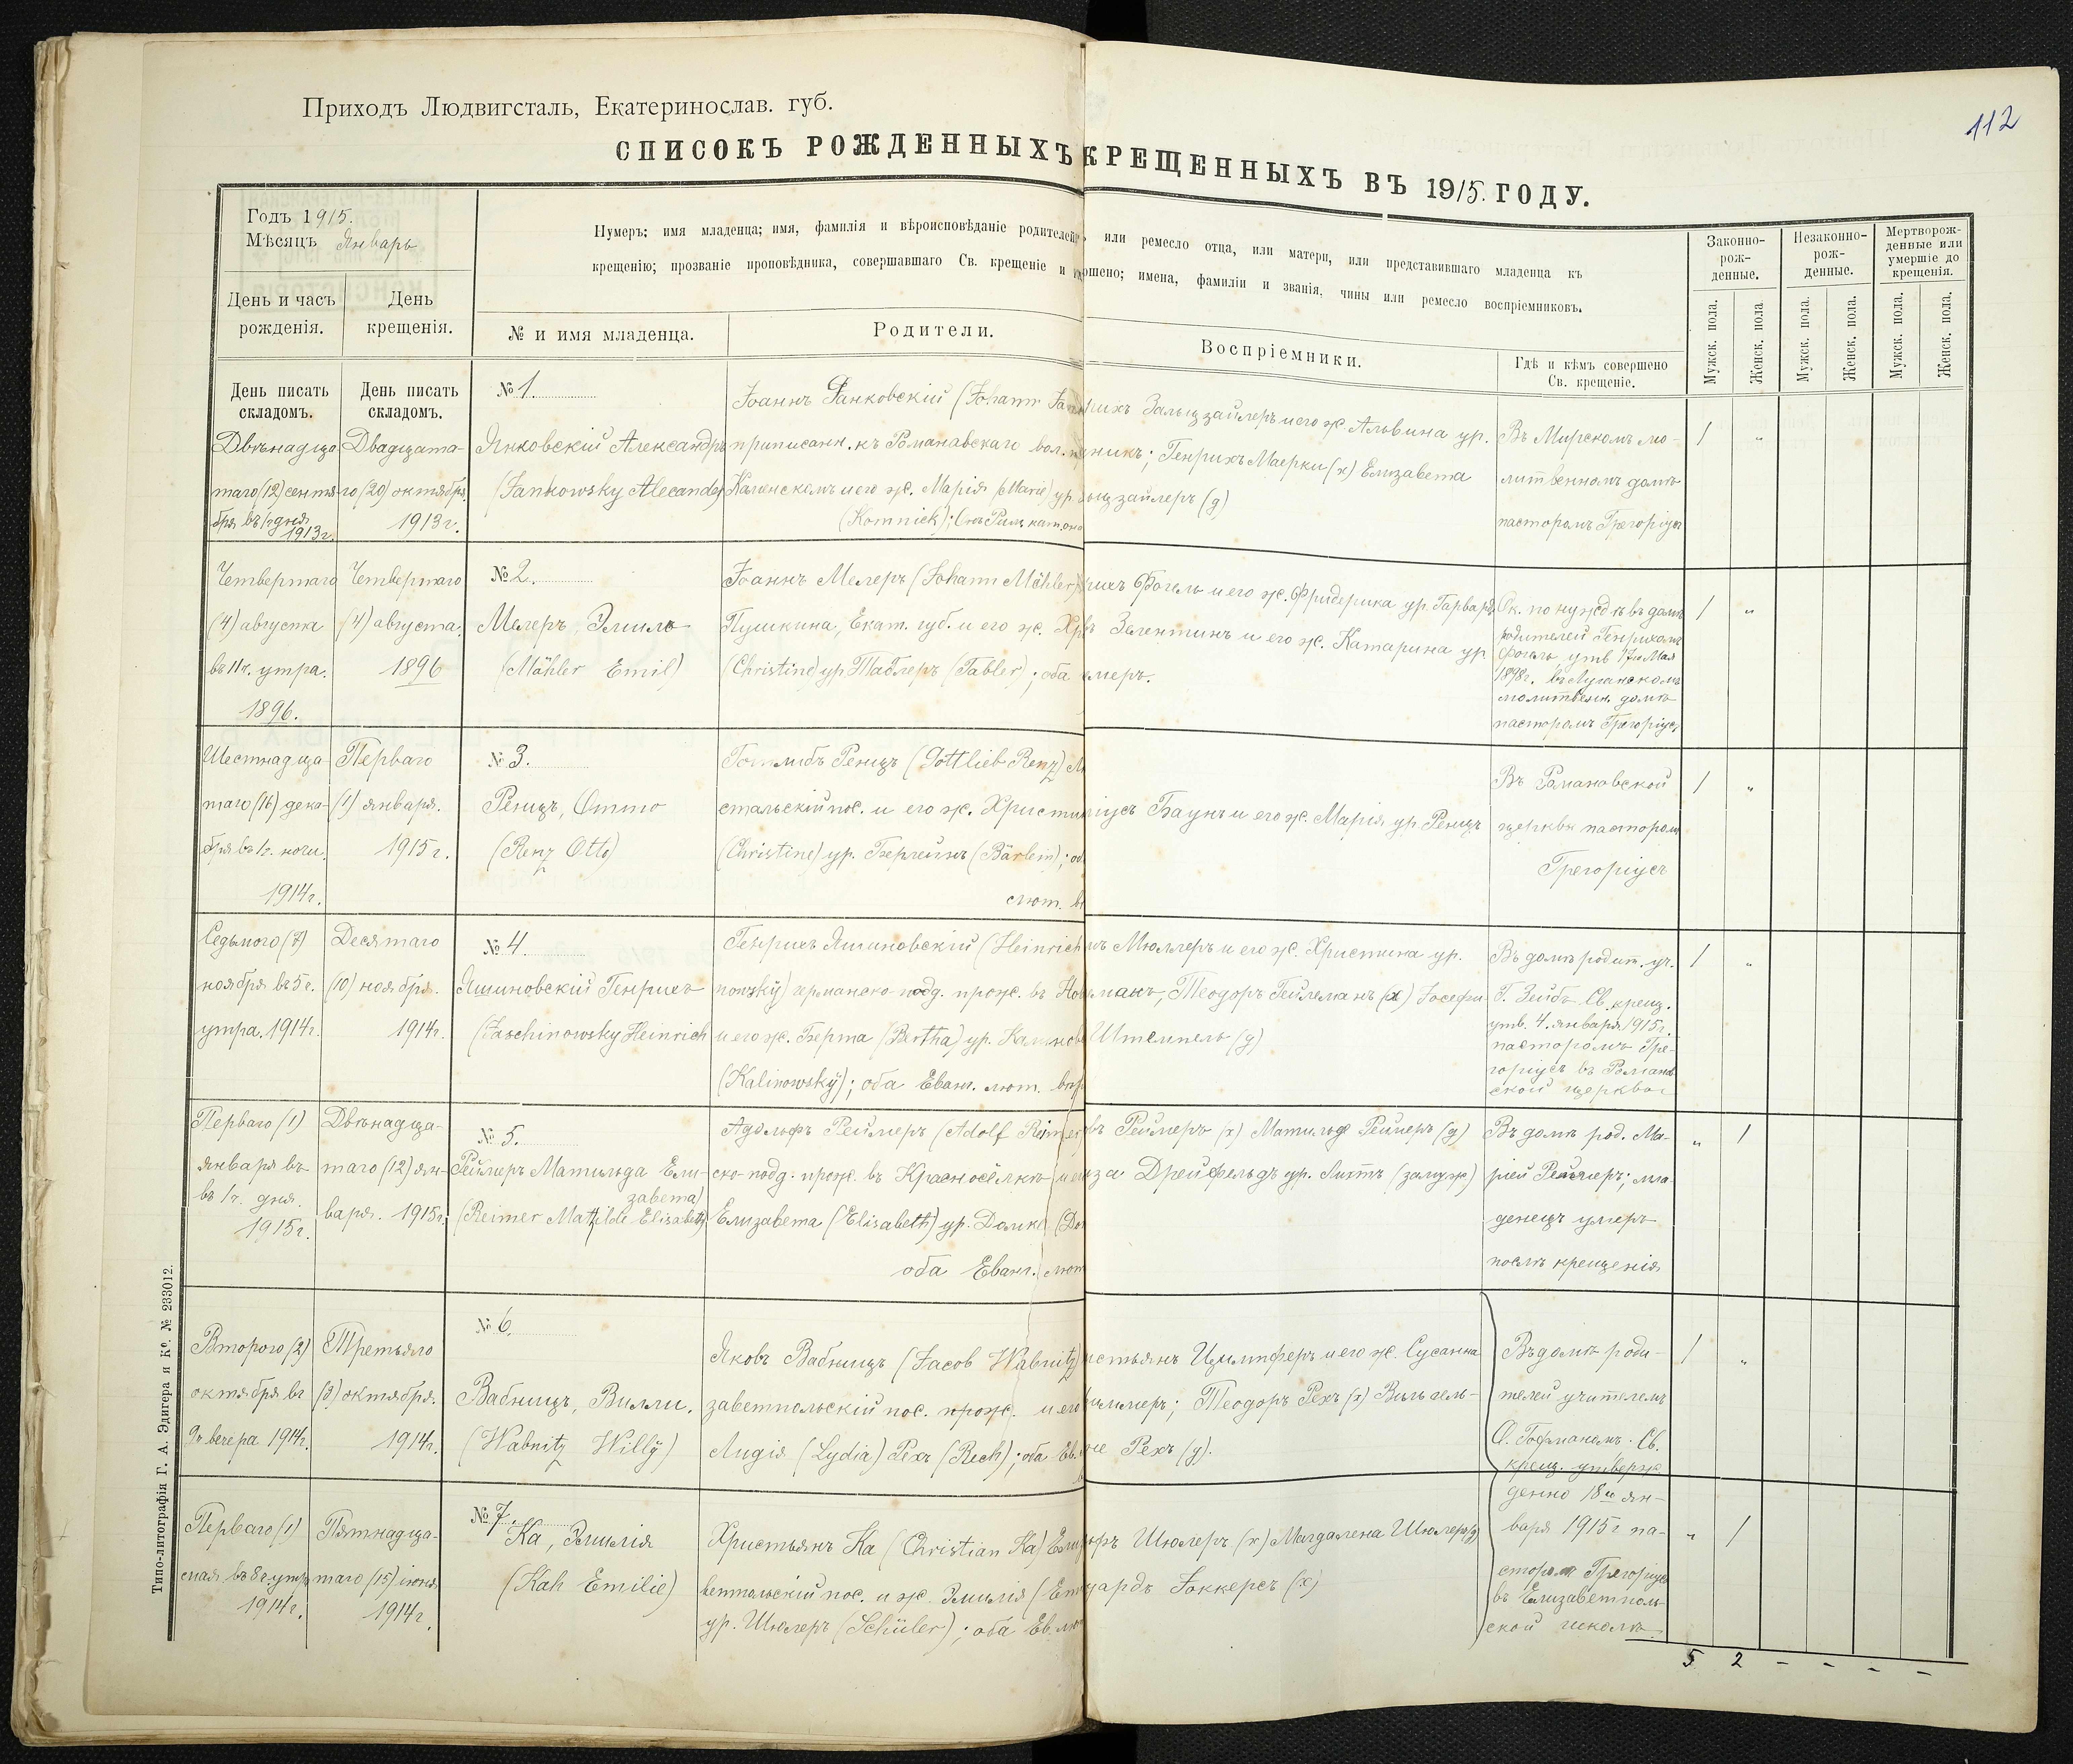 112
Приходъ Людвигсталь, Екатеринослав. губ.
СПИСОКЪ РОЖДЕННЫХЪ КРЕЩЕННЫХЪ ВЪ 1915. ГОДУ.
Годъ 1915.
Мѣсяцъ Январь
День и часъ рожденія.
День крещенія.
Нумеръ; имя младенца; имя, фамилія и вѣроисповѣданіе родителей
крещенію; прозваніе проповѣдника, совершавшаго Св. крещеніе и
№ и имя младенца.
Родители.
или ремесло отца, или матери, или представившаго младенца къ
имена, фамиліи и званія, чины или ремесло воспріемниковъ.
Воспріемники.
Гдѣ и кѣмъ совершено
Св. крещеніе.
Законно-
рож-
денные.
Незаконно-
рож-
денные.
Мертворож-
денные или
умершіе до
крещенія.
Мужск. пола.
Женск. пола.
Мужск. пола.
Женск. пола.
Мужск. пола.
Женск. пола.
День писать
складомъ.
Двѣнадца-
таго (12) сентя-
бря въ 1 ч дня
1913 г.
День писать
складомъ.
Двадцата-
го (20) октября.
1913 г.
№ 1.
Янковскій Александръ
(Jankowsky Alecander)
Іоаннъ Янковскій (Johann
приписанн. къ Романовскаго вол.
и его ж. Марія (Marie) ур.
(Komnick);
Зальцзайлеръ и его ж. Альвина ур.
Генрихъ Маерки (х) Елизавета
зайлеръ (д)
Въ Мирскомъ мо-
литвенномъ домѣ
пасторомъ Грегоріусъ
1 "
Четвертаго
(4) августа
въ 11 ч. утра.
1896.
Четвертаго
(4) августа.
1896
№ 2.
Мелеръ, Эмиль
(Mähler Emil)
Іоаннъ Мелеръ (Johann Mähler)
Пушкина, Екат. губ. и его ж.
(Christine) ур Таблеръ (Tabler); оба
Фогель и его ж. Фридерика ур.
Зелентинъ и его ж. Катарина ур
мелеръ.
Ск. по нуждѣ въ домѣ
родителей Генрихомъ
Фогель, утв 17го Мая
1898 г. въ Луганскомъ
молитвенн. домѣ
пасторомъ Грегоріусъ
1 "
Шестнадца-
таго (16) дека-
бря въ 1 ч. ночи.
1914 г.
Перваго
(1) января.
1915 г.
№ 3.
Ренцъ, Отто
(Renz Otto)
Готлибъ Ренцъ (Gottlieb Renz)
стальскій пос. и его ж.
(Christine) ур. Берлейнъ (Bärlein);
лют.
Баунъ и его ж. Марія ур Ренцъ
Въ Романовской
церкви пасторомъ
Грегоріусъ
1 "
Седьмого (7)
ноября въ 5 ч.
утра. 1914 г.
Десятаго
(10) ноября.
1914 г.
№ 4.
Яшиновскій Генрихъ
(Jaschinowsky Heinrich
Генрихъ Яшиновскій (Heinrich
nowsky) германско-подд. прож. въ
и его ж. Берта (Bertha) ур.
(Kalinowsky); оба Еванг. лют.
Мюллеръ и его ж. Христина ур.
Теодоръ Гейлеманъ (х)
Штемпель (д)
Въ домѣ родит. уч.
Г. Зейбъ Св. крещ.
утв. 4. января 1915 г.
пасторомъ Гре-
горіусъ въ Романов-
ской церкви
1 "
Перваго (1)
января въ
въ 1 ч. дня.
1915 г.
Двѣнадца-
таго (12) ян-
варя. 1915 г.
№ 5.
Реймеръ Матильда Ели-
завета
(Reimer Mathilde Elisabeth)
Адольфъ Реймеръ (Adolf Reimer
ско-подд. прож. въ Красносёлкѣ
Елизавета (Elisabeth) ур. Домке
оба Еванг. лют
Реймеръ (х) Матильда Реймеръ (д)
Дрейфельдъ ур. Лихтъ (замуж)
Въ домѣ род. Ма-
ріей Реймеръ; мла-
денецъ умеръ
послѣ крещенія
" 1
Второго (2)
октября въ
9 ч вечера 1914 г.
Третьяго
(3) октября.
1914 г.
№ 6.
Вабницъ, Вилли.
(Wabnitz Willy)
Яковъ Вабницъ (Jacob Wabnitz)
заветпольскій пос. прож. и его
Лидія (Lydia) Рехъ (Rech); оба Ев.
Цимпферъ и его ж. Сусанна
Теодоръ Рехъ (х) Вильгель-
Рехъ (д).
Въ домѣ роди-
телей учителемъ
О. Гофманомъ. Св.
крещ. утверж-
денно 18го ян-
варя 1915 г. па-
сторомъ Грегоріусъ
въ Елизаветполь-
ской школѣ.
1 "
Перваго (1)
мая въ 8 ч утра
1914 г.
Пятнадца-
таго (15) іюня
1914 г.
№ 7.
Ка, Эмилія
(Kah Emilie)
Христьянъ Ка (Christian Ka)
ветпольскій пос. и ж. Эмилія
ур. Шюлеръ (Schüler); оба Ев. лют
Шюлеръ (х) Магдалена Шюлеръ (д)
Іоккерсъ (х)
" 1
5 2 - - - -
Типо-литографія Г. А. Эдигера и Ко. № 233012.